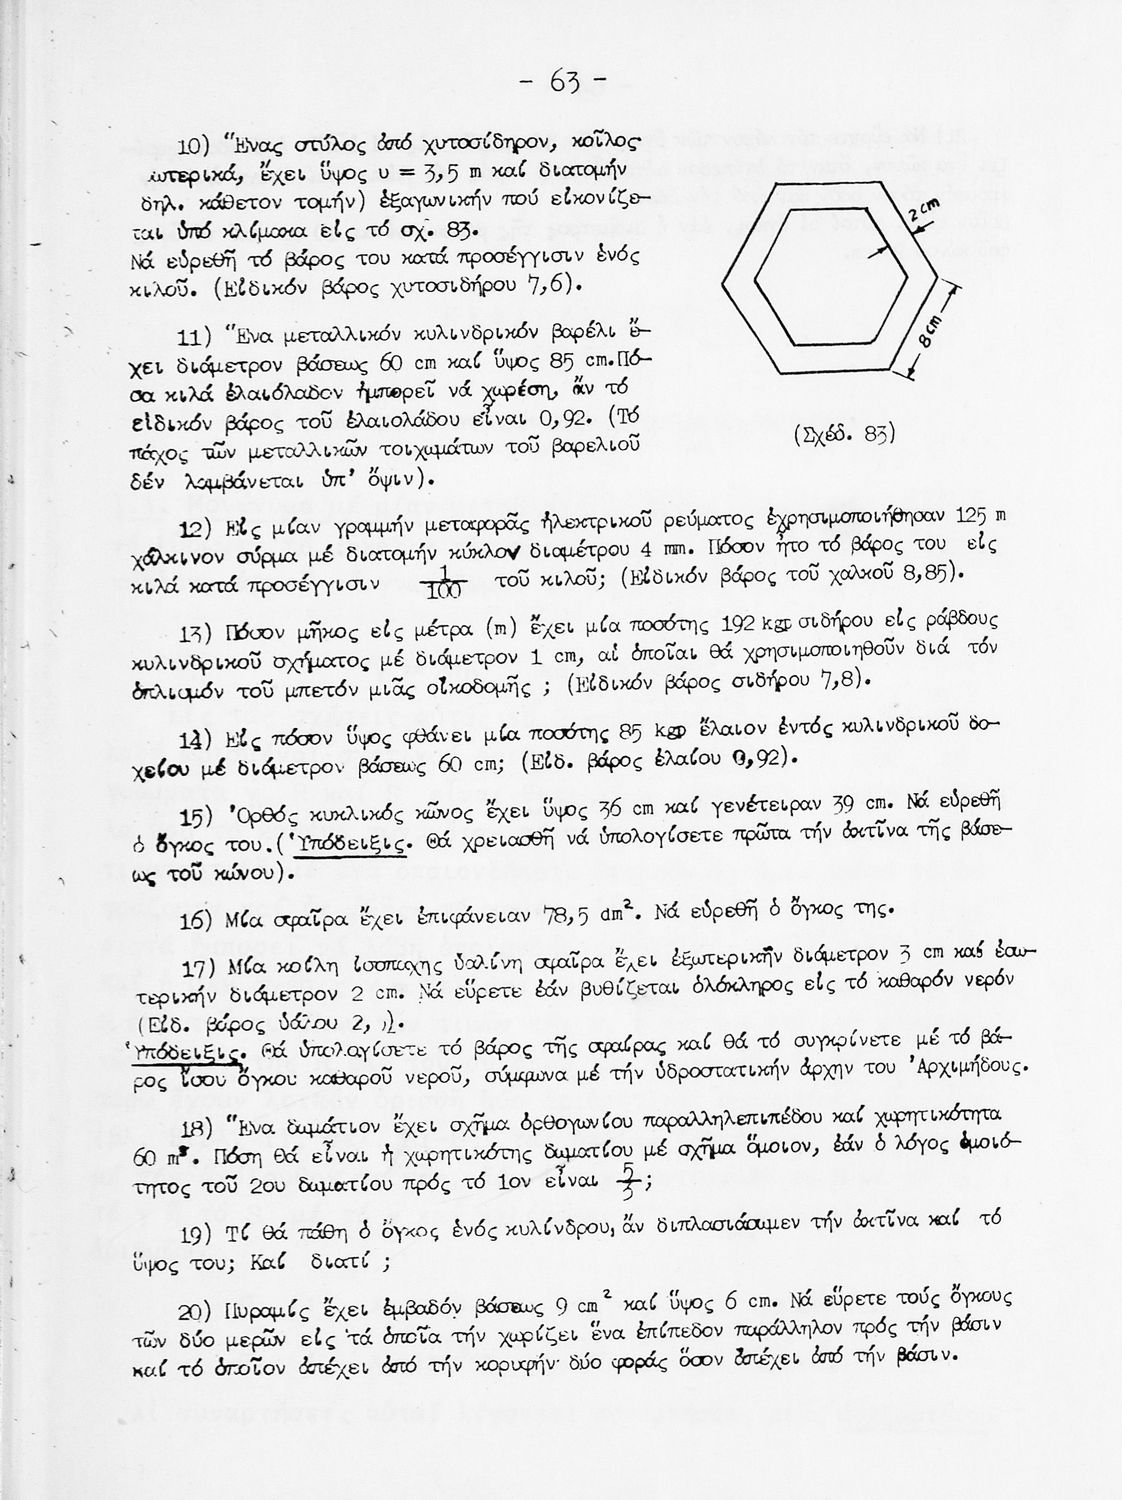 - 63 -
10) Ἕνας στύλος ἀπό χυτοσίδηρον, κοῖλος
ωτερικά, ἔχει ὕψος υ = 3,5 m καί διατομήν
δηλ. κάθετον τομήν) ἑξαγωνικήν πού εἰκονίζε-
ται ὑπό κλίμακα εἰς τό σχ. 83.
Νά εὑρεθῆ τό βάρος του κατά προσέγγισιν ἑνός
κιλοῦ. (Εἰδικόν βάρος χυτοσιδήρου 7,6).
2 cm
8 cm
(Σχέδ. 83)
11) Ἕνα μεταλλικόν κυλινδρικόν βαρέλι ἔ-
χει διάμετρον βάσεως 60 cm καί ὕψος 85 cm. Πό-
σα κιλά ἐλαιόλαδον ἠμπορεῖ νά χωρέση, ἄν τό
εἰδικόν βάρος τοῦ ἐλαιολάδου εἶναι 0,92. (Τό
πάχος τῶν μεταλλικῶν τοιχωμάτων τοῦ βαρελιοῦ
δέν λαμβάνεται ὑπ' ὄψιν).
12) Εἰς μίαν γραμμήν μεταφορᾶς ἠλεκτρικοῦ ρεύματος ἐχρησιμοποιήθησαν 125 m
χάλκινον σύρμα μέ διατομήν κύκλον διαμέτρου 4 mm. Πόσον ἦτο τό βάρος του εἰς
κιλά κατά προσέγγισιν 1/100 τοῦ κιλοῦ; (Εἰδικόν βάρος τοῦ χαλκοῦ 8,85).
13) Πόσον μῆκος εἰς μέτρα (m) ἔχει μία ποσότης 192 kgp σιδήρου εἰς ράβδους
κυλινδρικοῦ σχήματος μέ διάμετρον 1 cm, αἱ ὁποῖαι θά χρησιμοποιηθοῦν διά τόν
ὁπλισμόν τοῦ μπετόν μιᾶς οἰκοδομῆς ; (Εἰδικόν βάρος σιδήρου 7,8).
14) Εἰς πόσον ὕψος φθάνει μία ποσότης 85 kgp ἔλαιον ἐντός κυλινδρικοῦ δο-
χείου μέ διάμετρον βάσεως 60 cm; (Εἰδ. βάρος ἐλαίου 0,92).
15) Ὀρθός κυκλικός κῶνος ἔχει ὕψος 36 cm καί γενέτειραν 39 cm. Νά εὑρεθῆ
ὁ ὄγκος του. (Ὑπόδειξις. Θά χρειασθῆ νά ὑπολογίσετε πρῶτα τήν ἀκτῖνα τῆς βάσε-
ως τοῦ κώνου).
16) Μία σφαῖρα ἔχει ἐπιφάνειαν 78,5 dm². Νά εὑρεθῆ ὁ ὄγκος της.
17) Μία κοίλη ἰσοπαχης ὑαλίνη σφαῖρα ἔχει ἐξωτερικήν διάμετρον 3 cm καί ἐσω-
τερικήν διάμετρον 2 cm. Νά εὕρετε ἐάν βυθίζεται ὁλόκληρος εἰς τό καθαρόν νερόν
(Εἰδ. βάρος ὑάλου 2, ).
Ὑπόδειξις. Θά ὑπολογίσετε τό βάρος τῆς σφαίρας καί θά τό συγκρίνετε μέ τό βά-
ρος ἴσου ὄγκου καθαροῦ νεροῦ, σύμφωνα μέ τήν ὑδροστατικήν ἀρχην του Ἀρχιμήδους.
18) Ἕνα δωμάτιον ἔχει σχῆμα ὀρθογωνίου παραλληλεπιπέδου καί χωρητικότητα
60 m³. Πόση θά εἶναι ἡ χωρητικότης δωματίου μέ σχῆμα ὅμοιον, ἐάν ὁ λόγος ὁμοιό-
τητος τοῦ 2ου δωματίου πρός τό 1ον εἶναι 5/3;
19) Τί θά πάθη ὁ ὄγκος ἑνός κυλίνδρου, ἄν διπλασιάσωμεν τήν ἀκτῖνα καί τό
ὕψος του; Καί διατί ;
20) Πυραμίς ἔχει ἐμβαδόν βάσεως 9 cm² καί ὕψος 6 cm. Νά εὕρετε τούς ὄγκους
τῶν δύο μερῶν εἰς τά ὁποῖα τήν χωρίζει ἕνα ἐπίπεδον παράλληλον πρός τήν βάσιν
καί τό ὁποῖον ἀπέχει ἀπό τήν κορυφήν δύο φοράς ὅσον ἀπέχει ἀπό τήν βάσιν.